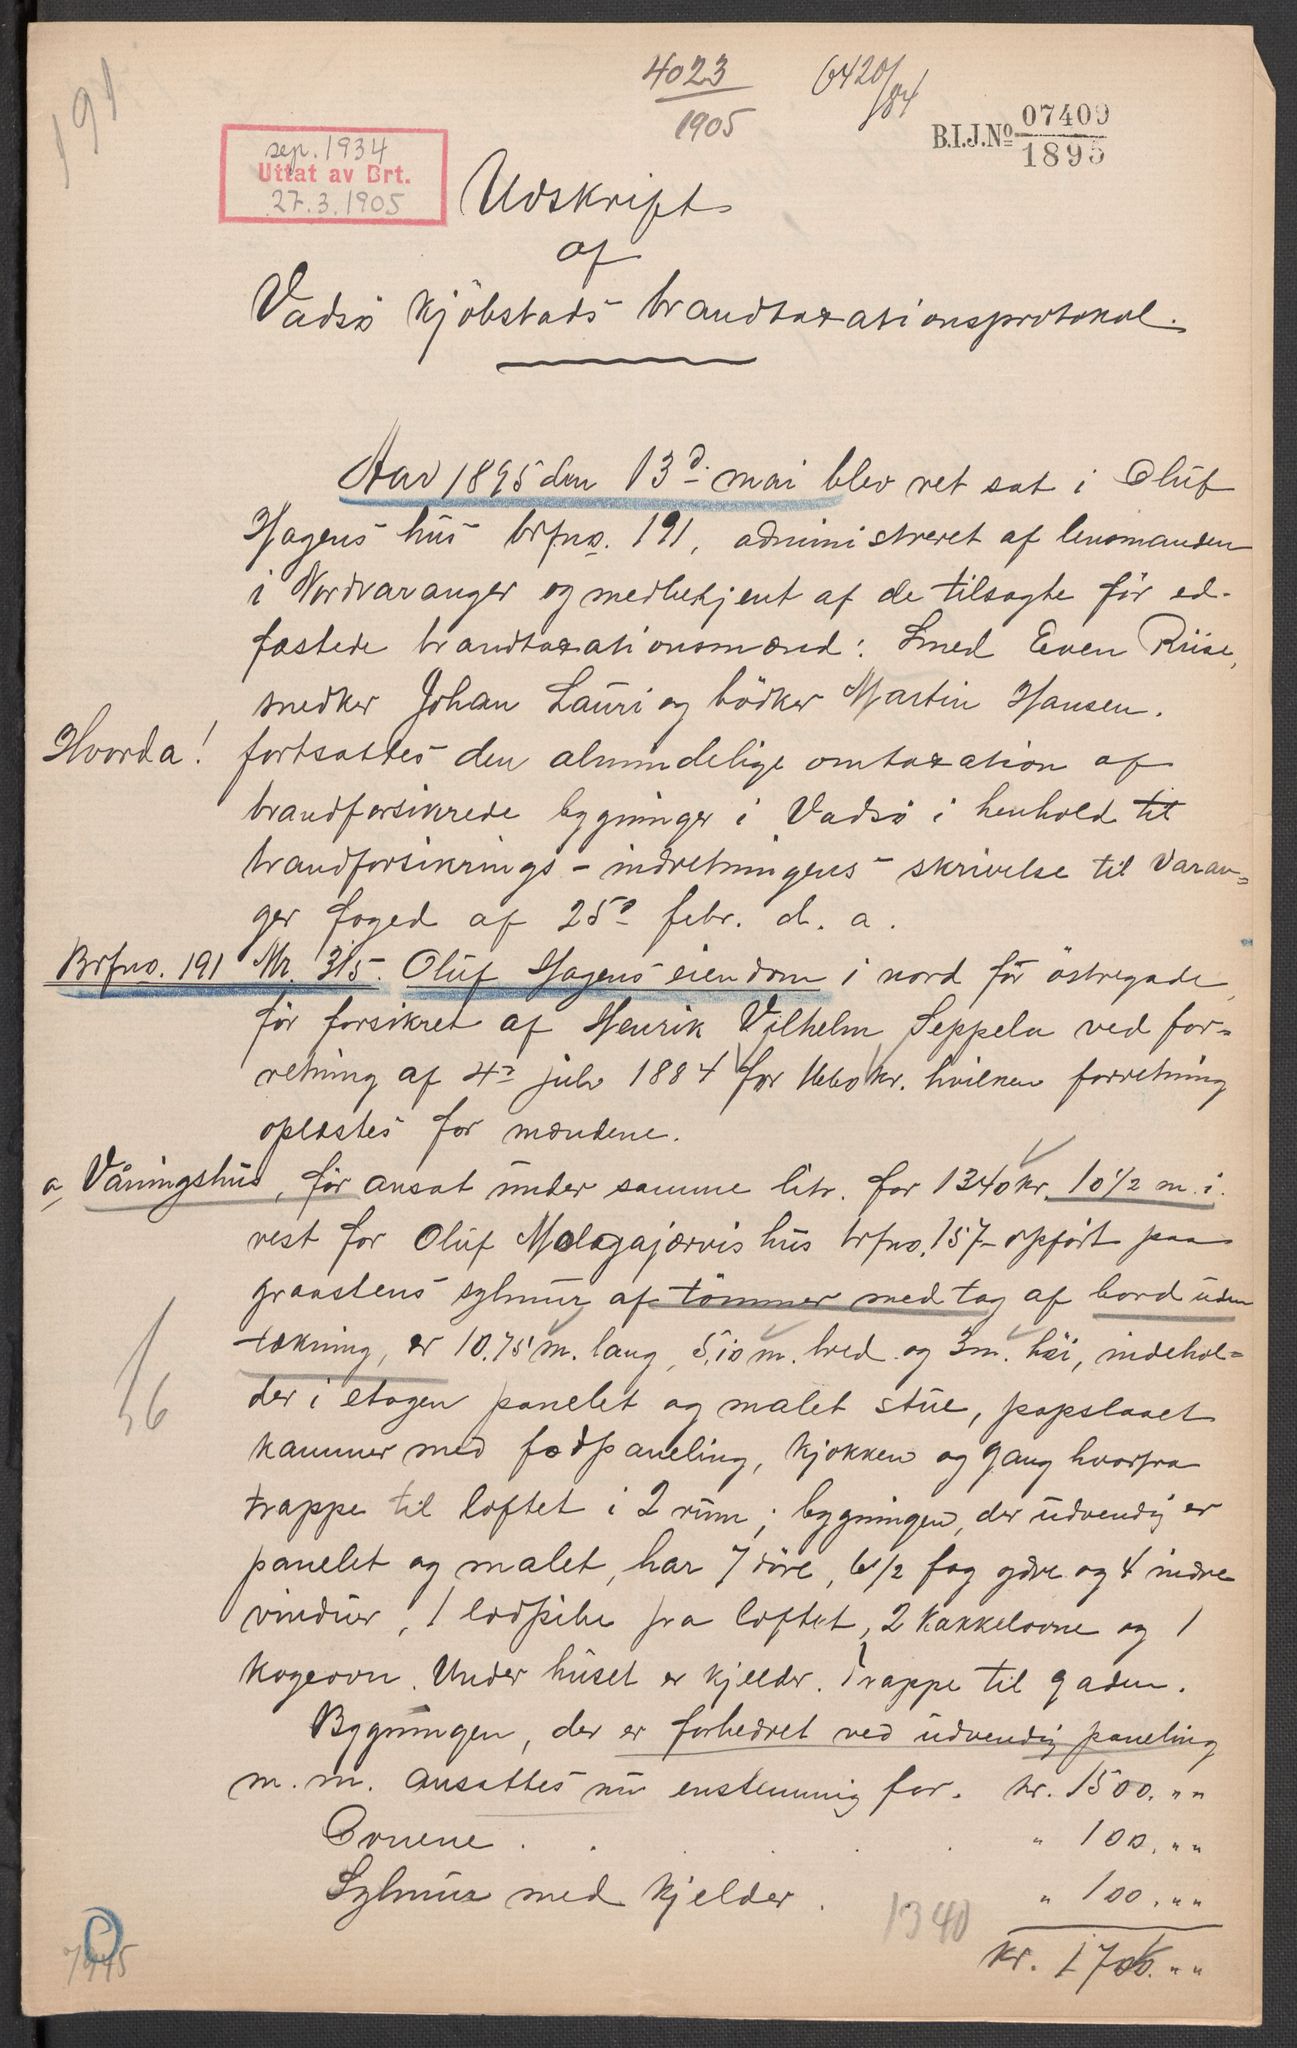 191
4023
1905
6420/84
B.I.J.No 07409
1895
sep. 1934
Uttat av Brt.
27.3.1905
Udskrift
af
Vadsö kjöbstads brandtaxationsprotokol.
Aar 1895 den 13d mai blev ret sat i Oluf
Hagens hus brfno. 191, administreret af lensmanden
i Nordvaranger og medbekjent af de tilsagte för ed-
fæstede brandtaxationsmænd: Smed Even Riise,
snedker Johan Lauri og bödker Martin Hansen.
Hvorda! fortsattes den almindelige omtaxation af
brandforsikrede bygninger i Vadsö i henhold til
brandforsikrings-indretningens skrivelse til Varan=
ger foged af 25de febr. d. a.
Brfno. 191 Nr. 315. Oluf Hagens eiendom i nord för östregade,
för forsikret af Henrik Vilhelm Seppela ved for=
retning af 4de juli 1884 for kr. hvilken forretning
oplæstes for mændene.
a, Våningshus, för ansat under samme litr. for 1340 kr. 10 1/2 m. i.
vest for Oluf Molagajærvis hus brfno. 157 opfört paa
graastens sylmur af tömmer med tag af bord uden
tækning, er 10.75 m. lang, 5,10 m. bred og 3 m. höi, indehol=
der i etagen panelet og malet stue, papslaaet
kammer med fodpaneling, kjøkken og gang hvorfra
trappe til loftet i 2 rum; bygningen, der udvendig er
panelet og malet, har 7 döre, 6 1/2 fag ydre og 4 indre
vinduer, 1 lodpibe fra loftet, 2 kakkelovne og 1
kogeovn. Under huset er kjelder. Trappe til gaden.
Bygningen, der er forbedret ved udvendig paneling
m. m. ansattes nu enstemmig for. kr. 1500. " "
Ovnene . . . . " 100. " "
Sylmur med kjelder . " 100. " "
1340
kr. 1700. " "